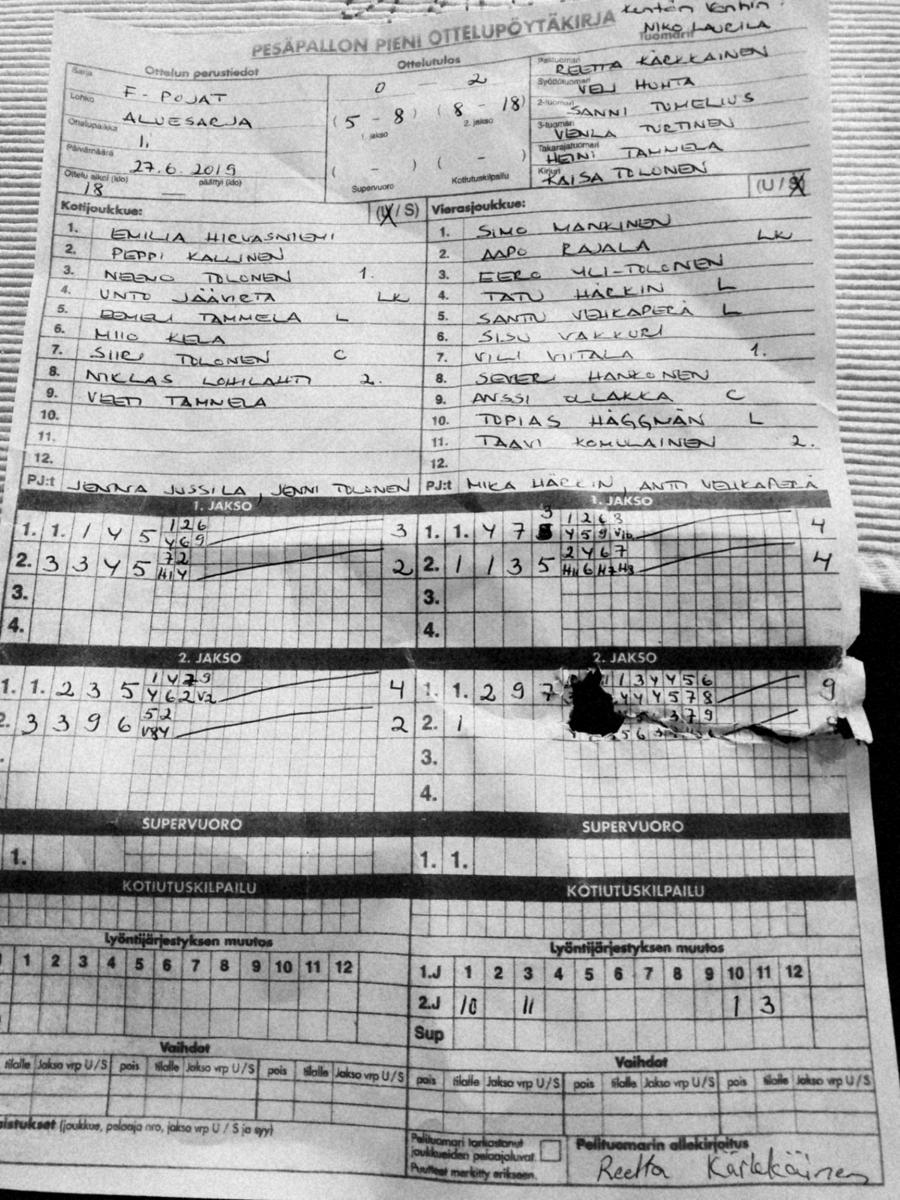 Kentän Vanhin:
NIKO LAURILA
PESÄPALLON PIENI OTTELUPÖYTÄKIRJA
Tuomarit
Ottelun perustiedot
Ottelutulos
Sarja
F-POJAT
Lohko
ALUESARJA
Ottelupaikka
1.
Päivämäärä
27.6.2019
Ottelu alkoi (klo)
päättyi (klo)
18
0 - 2
(5 - 8) (8 - 18)
1. jakso
2. jakso
( - ) ( - )
Supervuoro
Kotiutuskilpailu
Pelituomari
REETTA KÄRKKÄINEN
Syöttötuomari
VELI HUHTA
2-tuomari
SANNI TUMELIUS
3-tuomari
VENLA TURTINEN
Takarajatuomari
HEINI TAMMELA
Kirjuri
KAISA TOLONEN
Kotijoukkue:
(U / S)
1. EMILIA HIRVASNIEMI
2. PEPPI KALLINEN
3. NEEMO TOLONEN 1.
4. UNTO LK
5. EEMELI TAMMELA L
6. MIIO KELA
7. SIIRI TOLONEN C
8. NIKLAS LOHILAHTI 2.
9. VEETI TAMMELA
10.
11.
12.
PJ:t JENNA JUSSILA, JENNI TOLONEN
Vierasjoukkue:
(U / S)
1. SIMO MANKINEN
2. AAPO RAJALA LK
3. EERO YLI-TOLONEN
4. TATU HÄRKIN L
5. SANTU VEHKAPERÄ L
6. SISU VAKKURI
7. VILI VIITALA 1.
8. SEVERI HANKONEN
9. ANSSI OLLAKKA C
10. TOPIAS HÄGGMÄN L
11. TAAVI KOMULAINEN 2.
12.
PJ:t MIKA HÄRKIN, ANTTI VEHKAPERÄ
1. JAKSO
1. 1. 1 4 5 1 2 6 3
4 6 9
2. 3 3 4 5 7 2 2
H1 4
3.
4.
1. JAKSO
1. 1. 4 7 3 1 2 6 3 4
4 5 9 V10
2. 1 1 3 5 2 4 6 7 4
H11 6 H7 H3
3.
4.
2. JAKSO
1. 1. 2 3 5 1 4 7 9 4
4 6 2 V2
2. 3 3 9 6 5 2 2
V8 4
2. JAKSO
1. 1. 2 9 7 1 1 3 4 4 5 6 9
4 4 4 5 7 8
2. 1 3 7 9
3.
4.
SUPERVUORO
1.
SUPERVUORO
1. 1.
KOTIUTUSKILPAILU
KOTIUTUSKILPAILU
Lyöntijärjestyksen muutos
1 2 3 4 5 6 7 8 9 10 11 12
Lyöntijärjestyksen muutos
1.J 1 2 3 4 5 6 7 8 9 10 11 12
2.J 10 11 1 3
Sup
Vaihdot
tilalle Jakso vrp U / S pois tilalle Jakso vrp U / S pois tilalle Jakso vrp U / S
Vaihdot
pois tilalle Jakso vrp U / S pois tilalle Jakso vrp U / S pois tilalle Jakso vrp U / S
(joukkue, pelaaja nro, jakso vrp U / S ja syy)
Pelituomari tarkastanut
joukkueiden pelaajaluvat.
Puutteet merkitty erikseen.
Pelituomarin allekirjoitus
Reetta Kärkkäinen